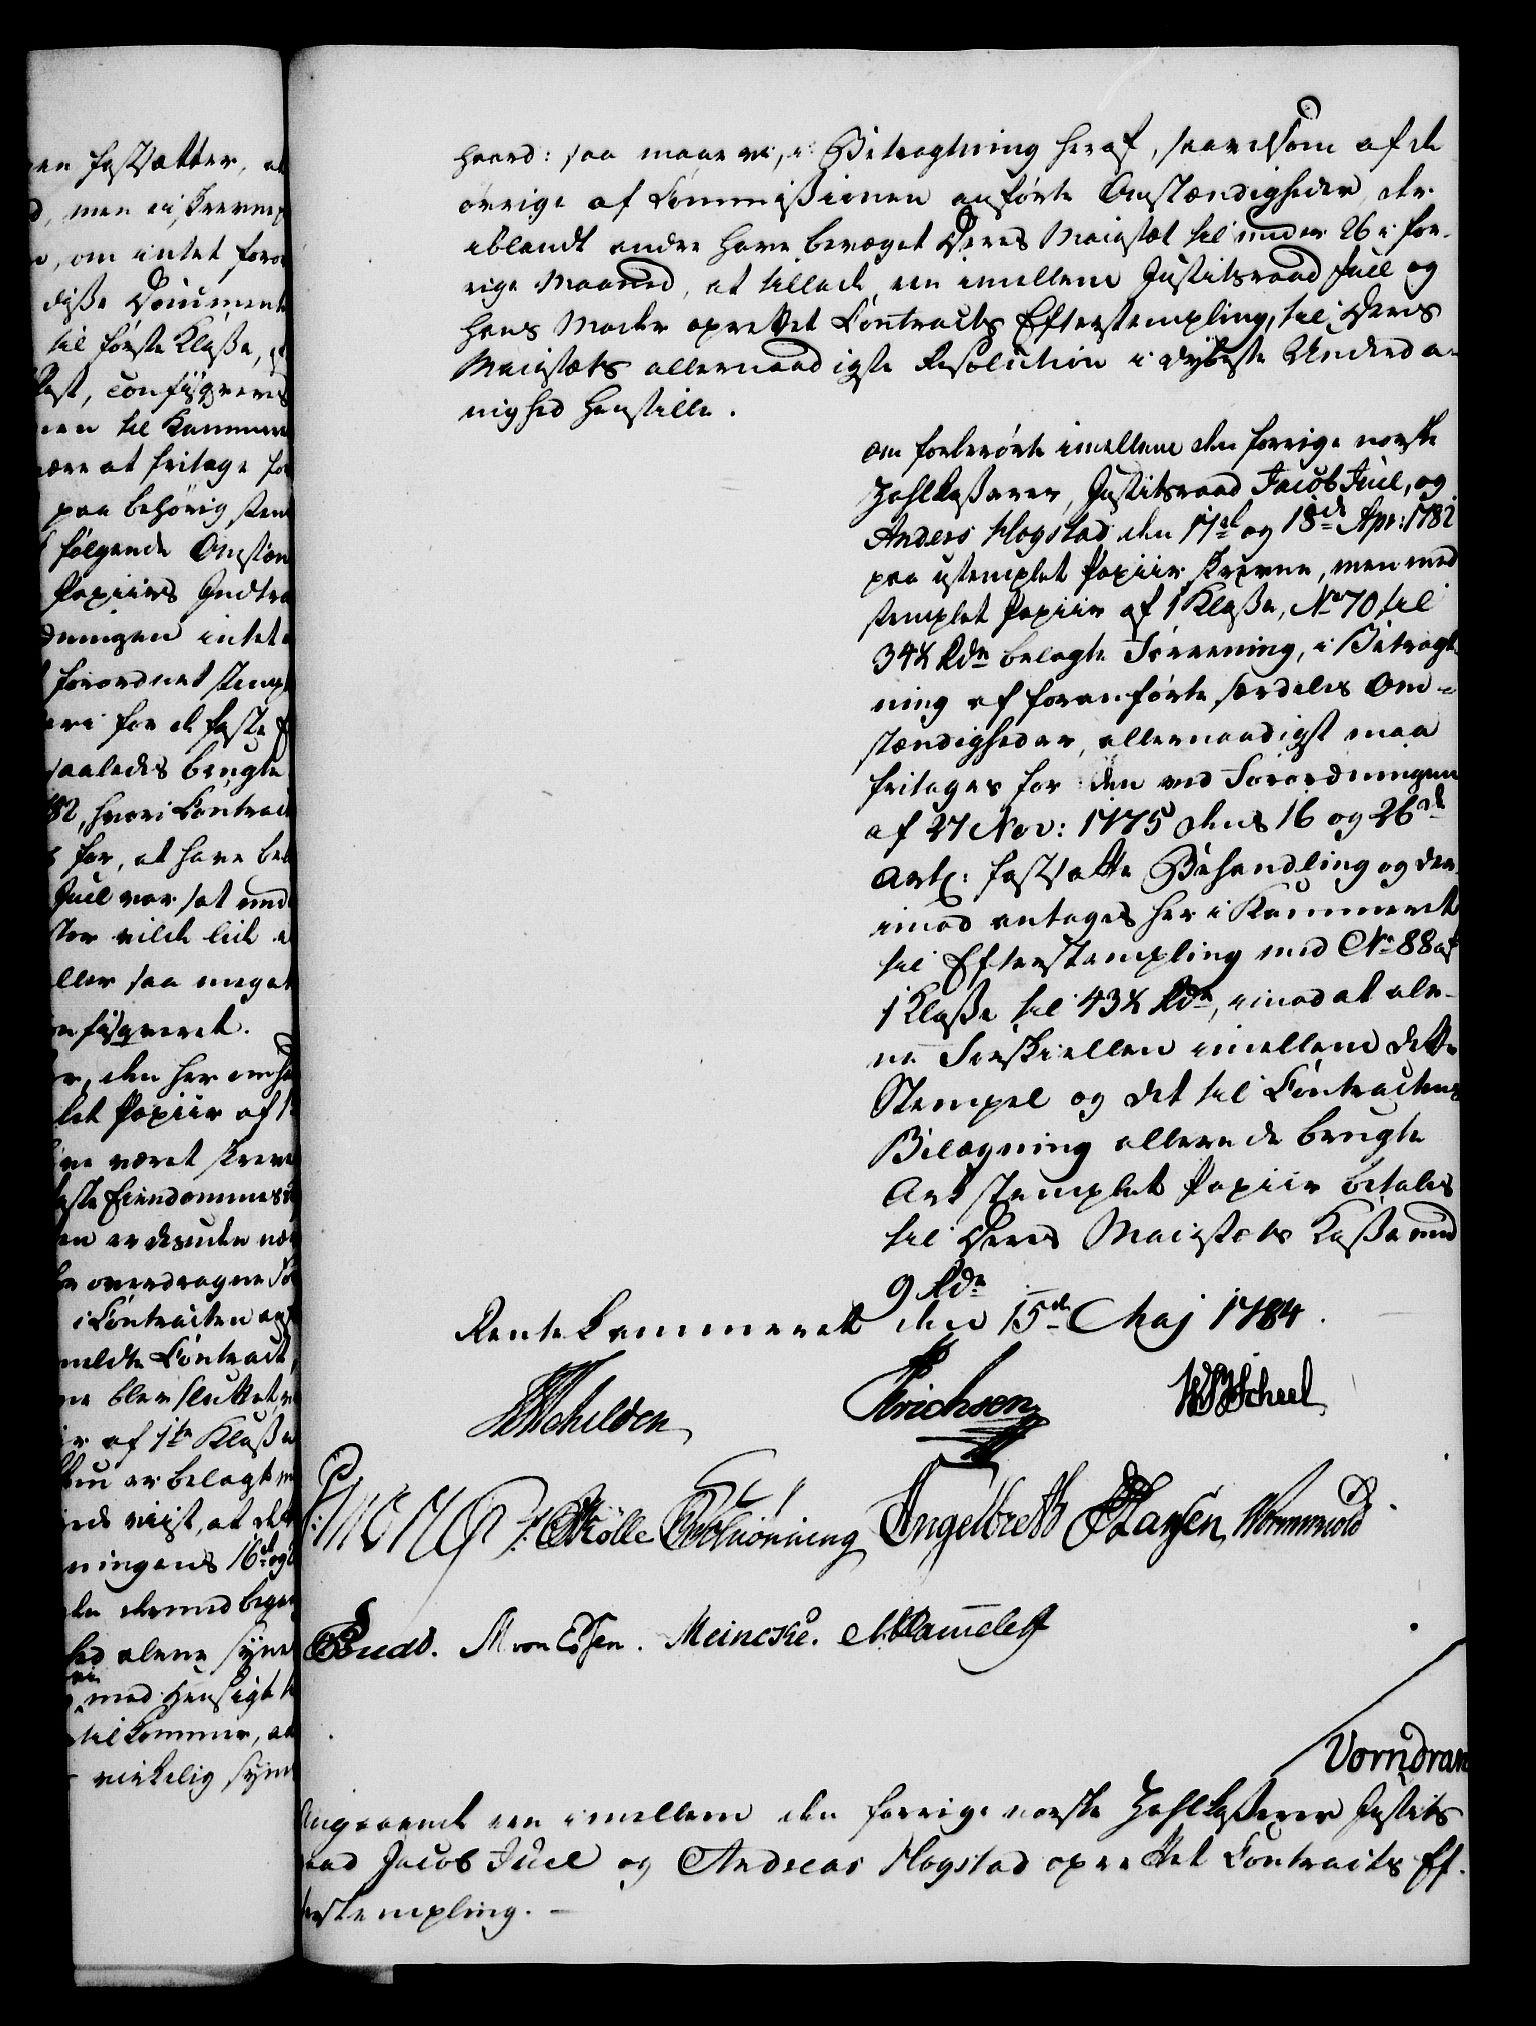 en fastsætter, at
men ei skreven
, om intet foror
disse Documente
til første Klasse,
confisqveres
en til Kammer
være at fritage for
paa behørig stem
følgende Omstæn
Papiirs Indtræ
dningen intet
forordnet stemp
for et faste
saaledes brugte
82, hvori Contract
for, at have be
Juel var sat
vilde lide
ller saa meget
nfisqveret.
den her om
let Papiir af 1
ne været skreven
faste Eiendommes
en er desuden
overdragne
i Contracten
meldte Contract,
ne blev sluttet,
af 1te Klasse
er belagt
viist, at de
ningens 16de og
dermed
alene
med Hensigt
tilkommer, at
virkelig
hoved: saa maae vi, i Betragtning heraf, saavelsom af de
øvrige af Commissionen anførte Omstændigheder, der
iblandt andre have bevæget Deres Maiestæt til under 26 i for-
rige Maaned, at tillade een imellem Justitsraad Juel og
hans Moder oprettet Contracts Efterstempling, til Deres
Maiestæts allernaadigste Resolution i dybeste Underda-
nighed henstille.
om forberørte imellem den forrige norske
Zahlkasserer, Justitsraad Jacob Juel, og
Anders Mogstad den 17de og 18de Apr: 1782
paa ustemplet Papiir skrevne, men med
stemplet Papiir af 1 Klasse, No 70 til
344 Rdr belagte Forening, i Betragt-
ning af foranførte særdeles Om-
stændigheder, allernaadigst maa
fritages for den ved Forordningen
af 27 Nov: 1775 dens 16 og 26de
Art: fastsatte Behandling og der-
imod antages her i Kammeret
til Efterstempling med No 88 af
1 Klasse til 434 Rdr, imod at ale-
ne Forskiellen imellem dette
Stempel og det til Contractens
Bilægning allerede brugte
Ark stemplet Papiir betales
til Deres Maiestæts Kasse med
9 Rdr
Rentekammeret den 15de Maj 1784.
Schilden Erichson Scheel
Mölle Schiönning Angelbreth Hansen Wormskiold
M von Essen. Meincke.
Vorndran
Angaaende een imellem den forrige norske Zahlkasserer Justits
raad Jacob Juel og Andreas Mogstad oprettet Contracts Ef-
terstempling.